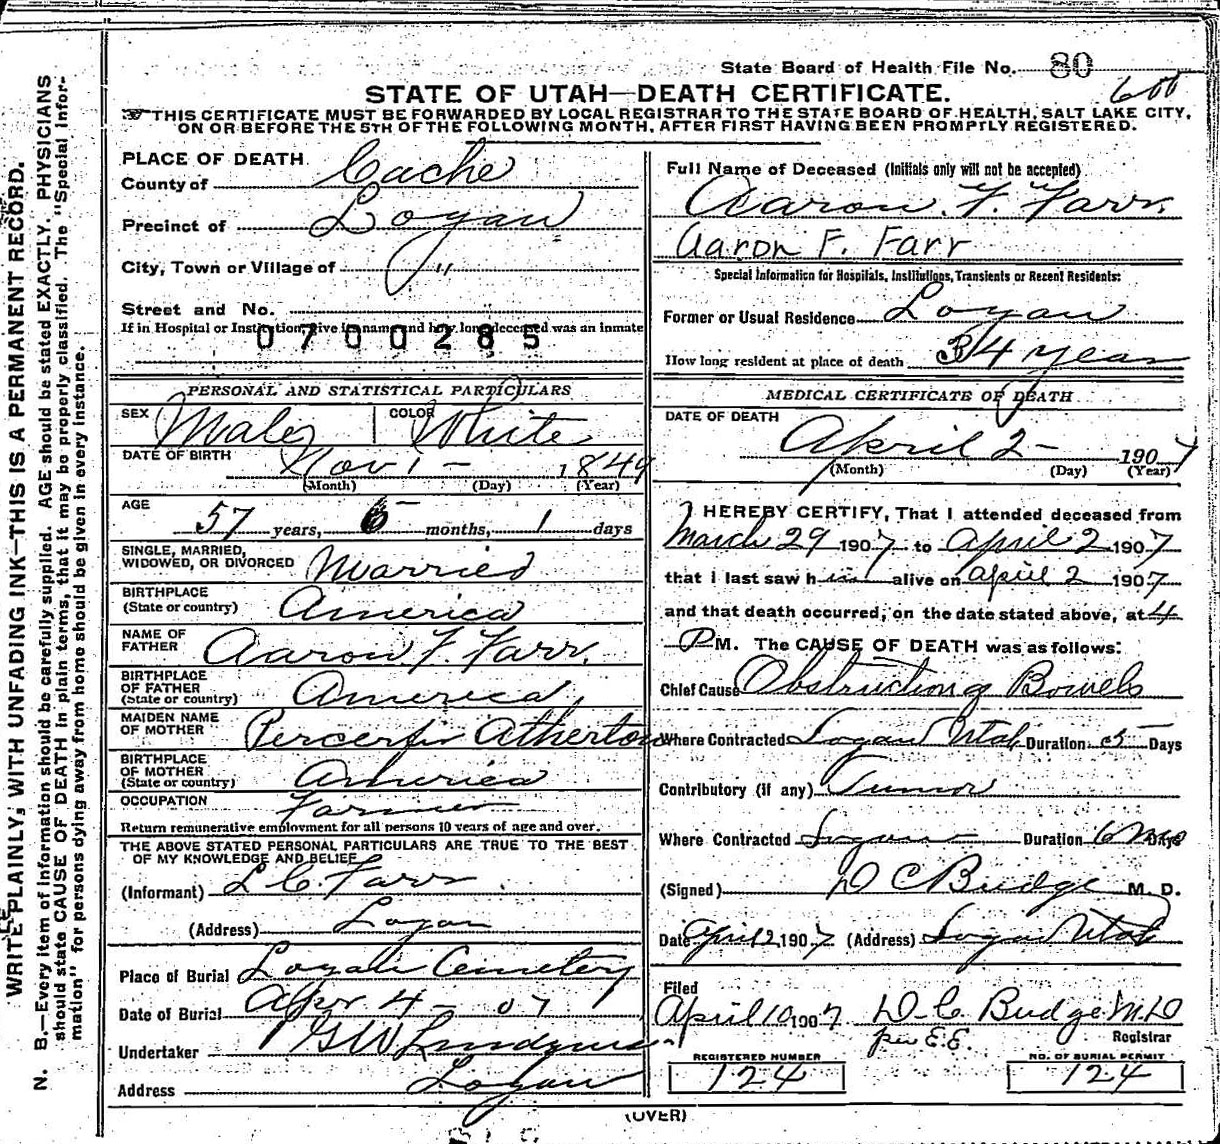 State Board of Health File No. 80
600
STATE OF UTAH—DEATH CERTIFICATE.
THIS CERTIFICATE MUST BE FORWARDED BY LOCAL REGISTRAR TO THE STATE BOARD OF HEALTH, SALT LAKE CITY,
ON OR BEFORE THE 5TH OF THE FOLLOWING MONTH, AFTER FIRST HAVING BEEN PROMPTLY REGISTERED.
WRITE PLAINLY, WITH UNFADING INK—THIS IS A PERMANENT RECORD.
N. B.—Every item of information should be carefully supplied. AGE should be stated EXACTLY. PHYSICIANS
should state CAUSE OF DEATH in plain terms, that it may be properly classified. The "Special Infor-
mation" for persons dying away from home should be given in every instance.
PLACE OF DEATH
County of Cache
Precinct of Logan
City, Town or Village of "
Street and No.
If in Hospital or Institution, give its name and how long deceased was an inmate
0700285
PERSONAL AND STATISTICAL PARTICULARS
SEX Male COLOR White
DATE OF BIRTH Nov 1 - 1849
(Month) (Day) (Year)
AGE
57 years, 5 months, 1 days
SINGLE, MARRIED,
WIDOWED, OR DIVORCED Married
BIRTHPLACE
(State or country) America
NAME OF
FATHER Aaron F. Farr.
BIRTHPLACE
OF FATHER
(State or country) America
MAIDEN NAME
OF MOTHER Atherton
BIRTHPLACE
OF MOTHER
(State or country) America
OCCUPATION Farmer
Return remunerative employment for all persons 10 years of age and over.
THE ABOVE STATED PERSONAL PARTICULARS ARE TRUE TO THE BEST
OF MY KNOWLEDGE AND BELIEF
(Informant) L C. Farr
(Address) Logan
Place of Burial Logan Cemetery
Date of Burial Apr. 4 - 07
Undertaker G W
Address Logan
Full Name of Deceased (Initials only will not be accepted)
Aaron. F. Farr.
Aaron F. Farr
Special Information for Hospitals, Institutions, Transients or Recent Residents:
Former or Usual Residence Logan
How long resident at place of death 34 year
MEDICAL CERTIFICATE OF DEATH
DATE OF DEATH
April 2 - 1907
(Month) (Day) (Year)
I HEREBY CERTIFY, That I attended deceased from
March 29 1907 to April 2 1907
that I last saw him alive on April 2 1907
and that death occurred, on the date stated above, at 4
P M. The CAUSE OF DEATH was as follows:
Chief Cause Obstruction of Bowels
Where Contracted Logan Utah Duration 5 Days
Contributory (if any) Tumor
Where Contracted Logan Duration 6 Mo Days
(Signed) D C Budge M. D.
Date April 2, 1907 (Address) Logan Utah
Filed
April 10 1907 D. C. Budge M.D
per E.E. Registrar
REGISTERED NUMBER
124
NO. OF BURIAL PERMIT
124
(OVER)